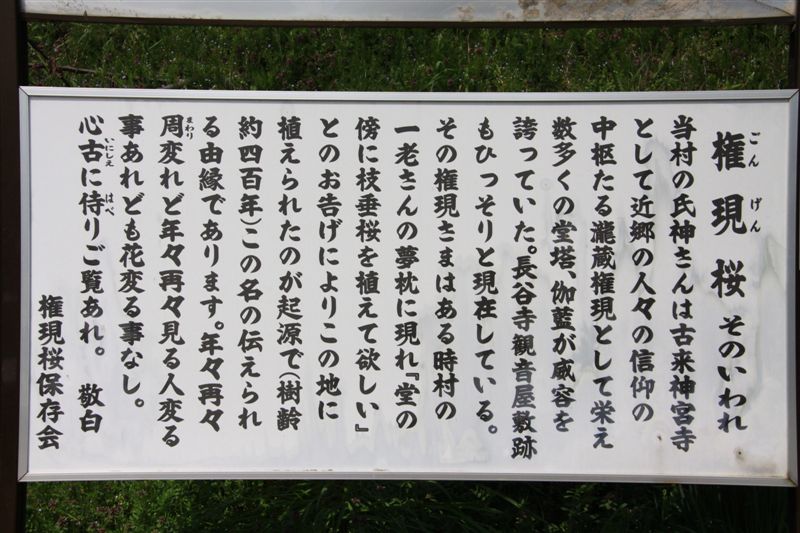 権現桜 そのいわれ
ごん げん
当村の氏神さんは古来神宮寺
として近郷の人々の信仰の
中枢たる瀧蔵権現として栄え
数多くの堂塔、伽藍が威容を
誇っていた。長谷寺観音屋敷跡
もひっそりと現在している。
その権現さまはある時村の
一老さんの夢枕に現れ『堂の
傍に枝垂桜を植えて欲しい』
とのお告げによりこの地に
植えられたのが起源で(樹齢
約四百年)この名の伝えられ
る由縁であります。年々再々
周変れど年々再々見る人変る
まわり
事あれども花変る事なし。
心古に侍りご覧あれ。 敬白
いにしえ はべ
権現桜保存会